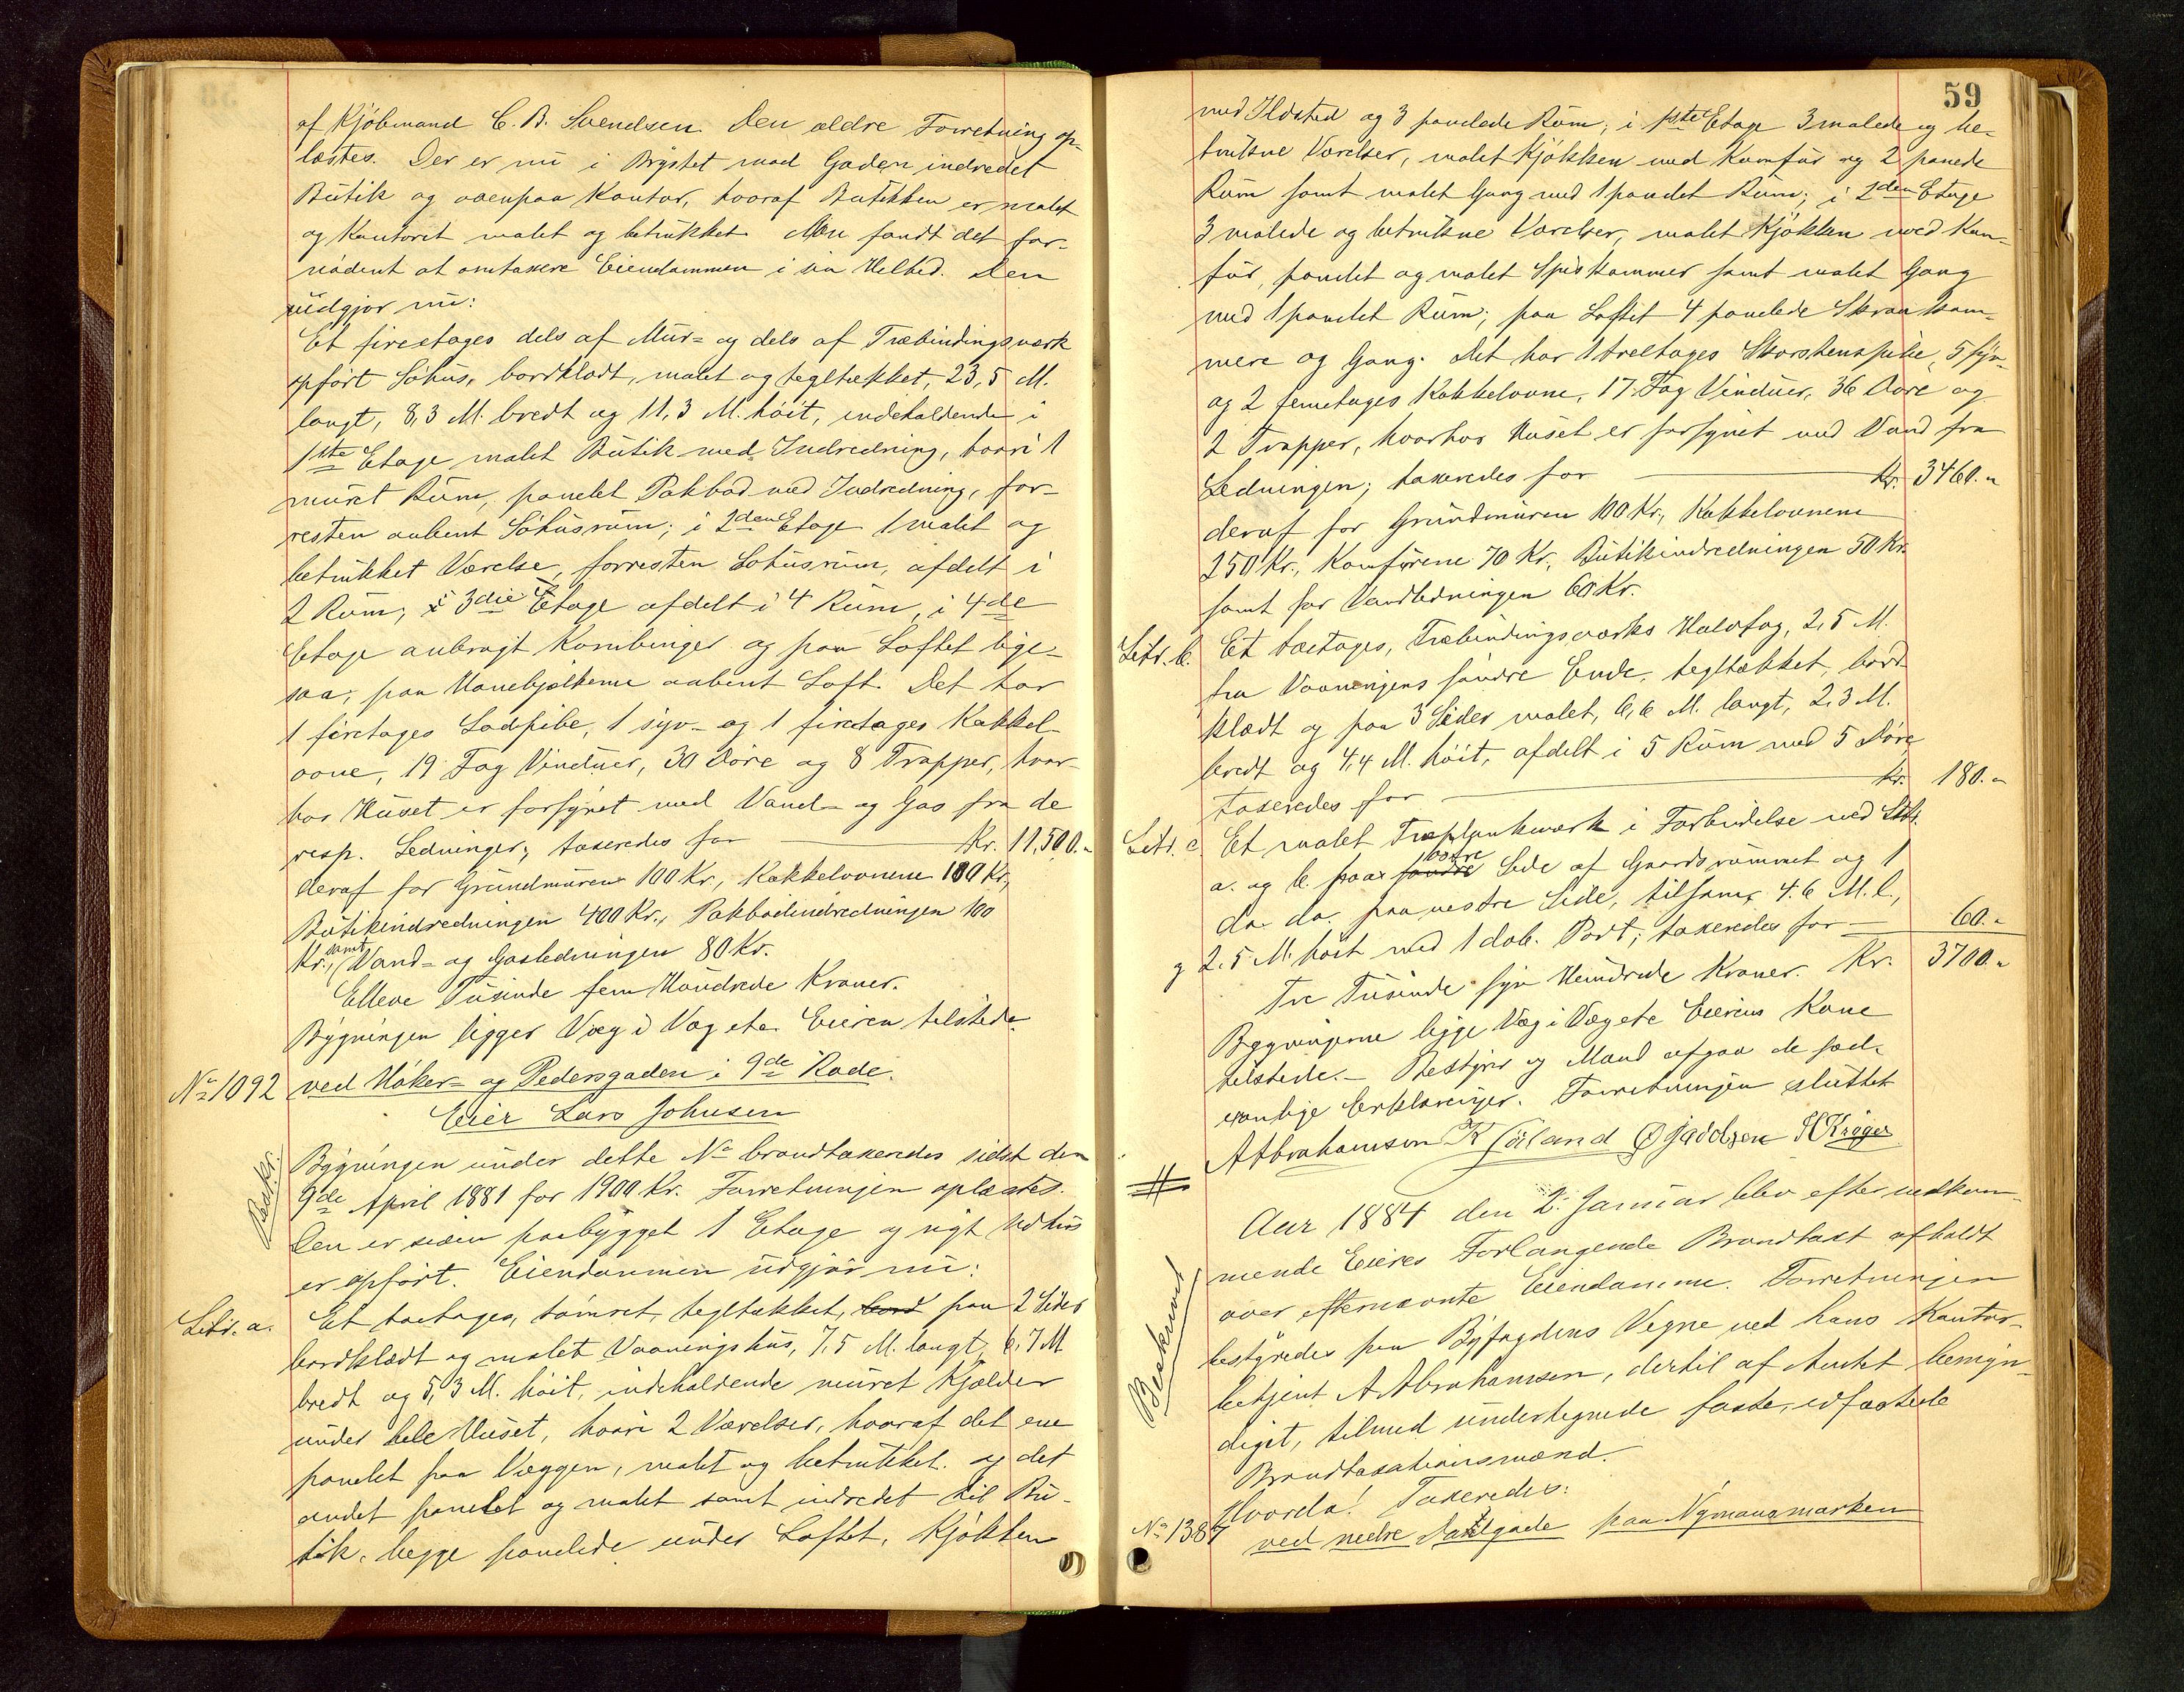 af Kjöbmand C. B. Svendsen. Den ældre Forretning op-
læstes. Der er nu i Brystet mod Gaden indredet
Butik og ovenpaa Kontor, hvoraf Butikken er malet
og Kontoret malet og betrukket. Man fandt det for-
nødent at omtaxere Eiendommen i sin Helhed. Den
udgjør nu:
Et fireetages dels af Mur- og dels af Træbindingsværk
opført Søhus, bordklædt, malet og tegltækket, 23,5 M.
langt, 8,3 M. bredt og 11,3 M. höit, indeholdende i
1ste Etage malet Butik med Indredning, hvori 1
muret Rum, panelet Pakbod med Indredning, for-
resten aabent Söhusrum; i 2den Etage 1 malet og
betrukket Værelse, forresten Sohusrum, afdelt i
2 Rum; i 3die Etage afdelt i 4 Rum, i 4de
Etage anbragt Kornbinger og paa Loftet lige-
saa; paa Hanebjelkerne aabent Loft. Det har
1 firetages Lodpibe, 1 syv- og 1 firetages Kakkel-
ovne, 19 Fag Vinduer, 30 Døre og 8 Trapper, hvor-
hos Huset er forsynet med Vand- og Gas fra de
resp. Ledninger; taxeredes for Kr. 11,500.-
deraf for Grundmuren 100 Kr., Kakkelovnene 100 Kr,
Butikindredningen 400 Kr., Pakbodindredningen 100
Kr., samt Vand- og Gasledningen 80 Kr.
Elleve Tusinde fem Hundrede Kroner.
Bygningen ligger Væg i Væg etc. Eieren tilstede.
No 1092 ved Höker- og Pedersgaden i 9de Rode.
Eier Lars Johnsen
Besker.
Bygningen under dette No brandtaxeredes sidst den
9de April 1881 for 1900 Kr. Forretningen oplæstes.
Den er siden paabygget 1 Etage og nyt Udhus
er opført. Eiendommen udgjör nu:
Litr. a. Et toetages, tömret, tegltækket, bord paa 2 Sider
bordklædt og malet Vaaningshus, 7,5 M. langt, 6,7 M
bredt og 5,3 M. höit, indeholdende muret Kjælder
under hele Huset, hvori 2 Værelser, hvoraf det ene
panelet paa Væggen, malet og betrukket og det
andet panelet og malet samt indredet til Bu-
tik, begge panelede under Loftet, Kjökken
59
med Ildsted og 3 panelede Rum; i 1ste Etage 3 malede og be-
trukne Værelser, malet Kjökken med Komfur og 2 panede
Rum samt malet Gang med 1 panelet Rum; i 2den Etage
3 malede og betrukne Værelser, malet Kjökken med Kom-
für, panelet og malet Spiskammer samt malet Gang
med 1 panelet Rum; paa Loftet 4 panelede Skraakam-
mere og Gang. Det har 1 treetages Skorstenspibe, 5 syv-
og 2 femetages Kakkelovne, 17 Fag Vinduer, 36 Døre og
2 Trapper, hvorhos Huset er forsynet med Vand fra
Ledningen; taxeredes for Kr. 3460.-
deraf for Grundmuren 100 Kr., Kakkelovnene
250 Kr., Komfurene 70 Kr., Butikindredningen 50 Kr.
samt for Vandledningen 60 Kr.
Litr. b. Et toetages, Træbindingsværks Halvtag, 2,5 M.
fra Vaaningens søndre Ende, tegltækket, bord-
klædt og paa 3 Sider malet, 6,6 M. langt, 2,3 M.
bredt og 4,4 M. höit, afdelt i 5 Rum med 5 Døre
taxeredes for Kr. 180.-
Litr. c Et malet Træplankeværk i Forbindelse med Litr.
a. og b. paa søndre østre Side af Gaardsrummet og 1
do. do. paa vestre Side, tilsam. 4.6 M. l.,
g 2.5 M. höit med 1 dob. Port; taxeredes for 60.-
Tre Tusinde syv Hundrede Kroner. Kr. 3700.-
Bygningerne ligge Væg i Væg etc Eierens Kone
tilstede. - Bestyrer og Mænd afgav de sæd-
vanlige Erklæringer. Forretningen sluttet
A Abrahamsen Jaadtsen Kröger
Aar 1884 den 2. Januar blev efter vedkom-
Beskrevet
mende Eieres Forlangende Brandtaxt afholdt
over efternævnte Eiendomme. Forretningen
bestyredes paa Byfogdens Vegne ved hans Kontor-
betjent A Abrahamsen, dertil af Amtet bemyn-
diget, tilmed undertegnede faste, edfæstede
Brandtaxationsmænd.
Hvorda! Taxeredes:
No 1387 ved nedre gade paa Nymansmarken